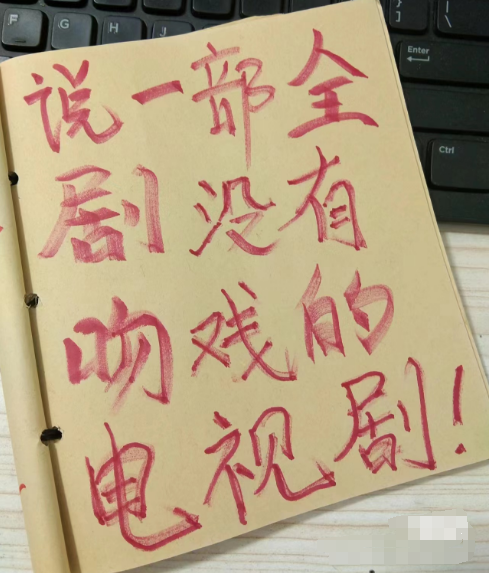 说一部全
剧没有
吻戏的
电视剧!
F
G
H
J
K
L
]
\
Enter
Ctrl